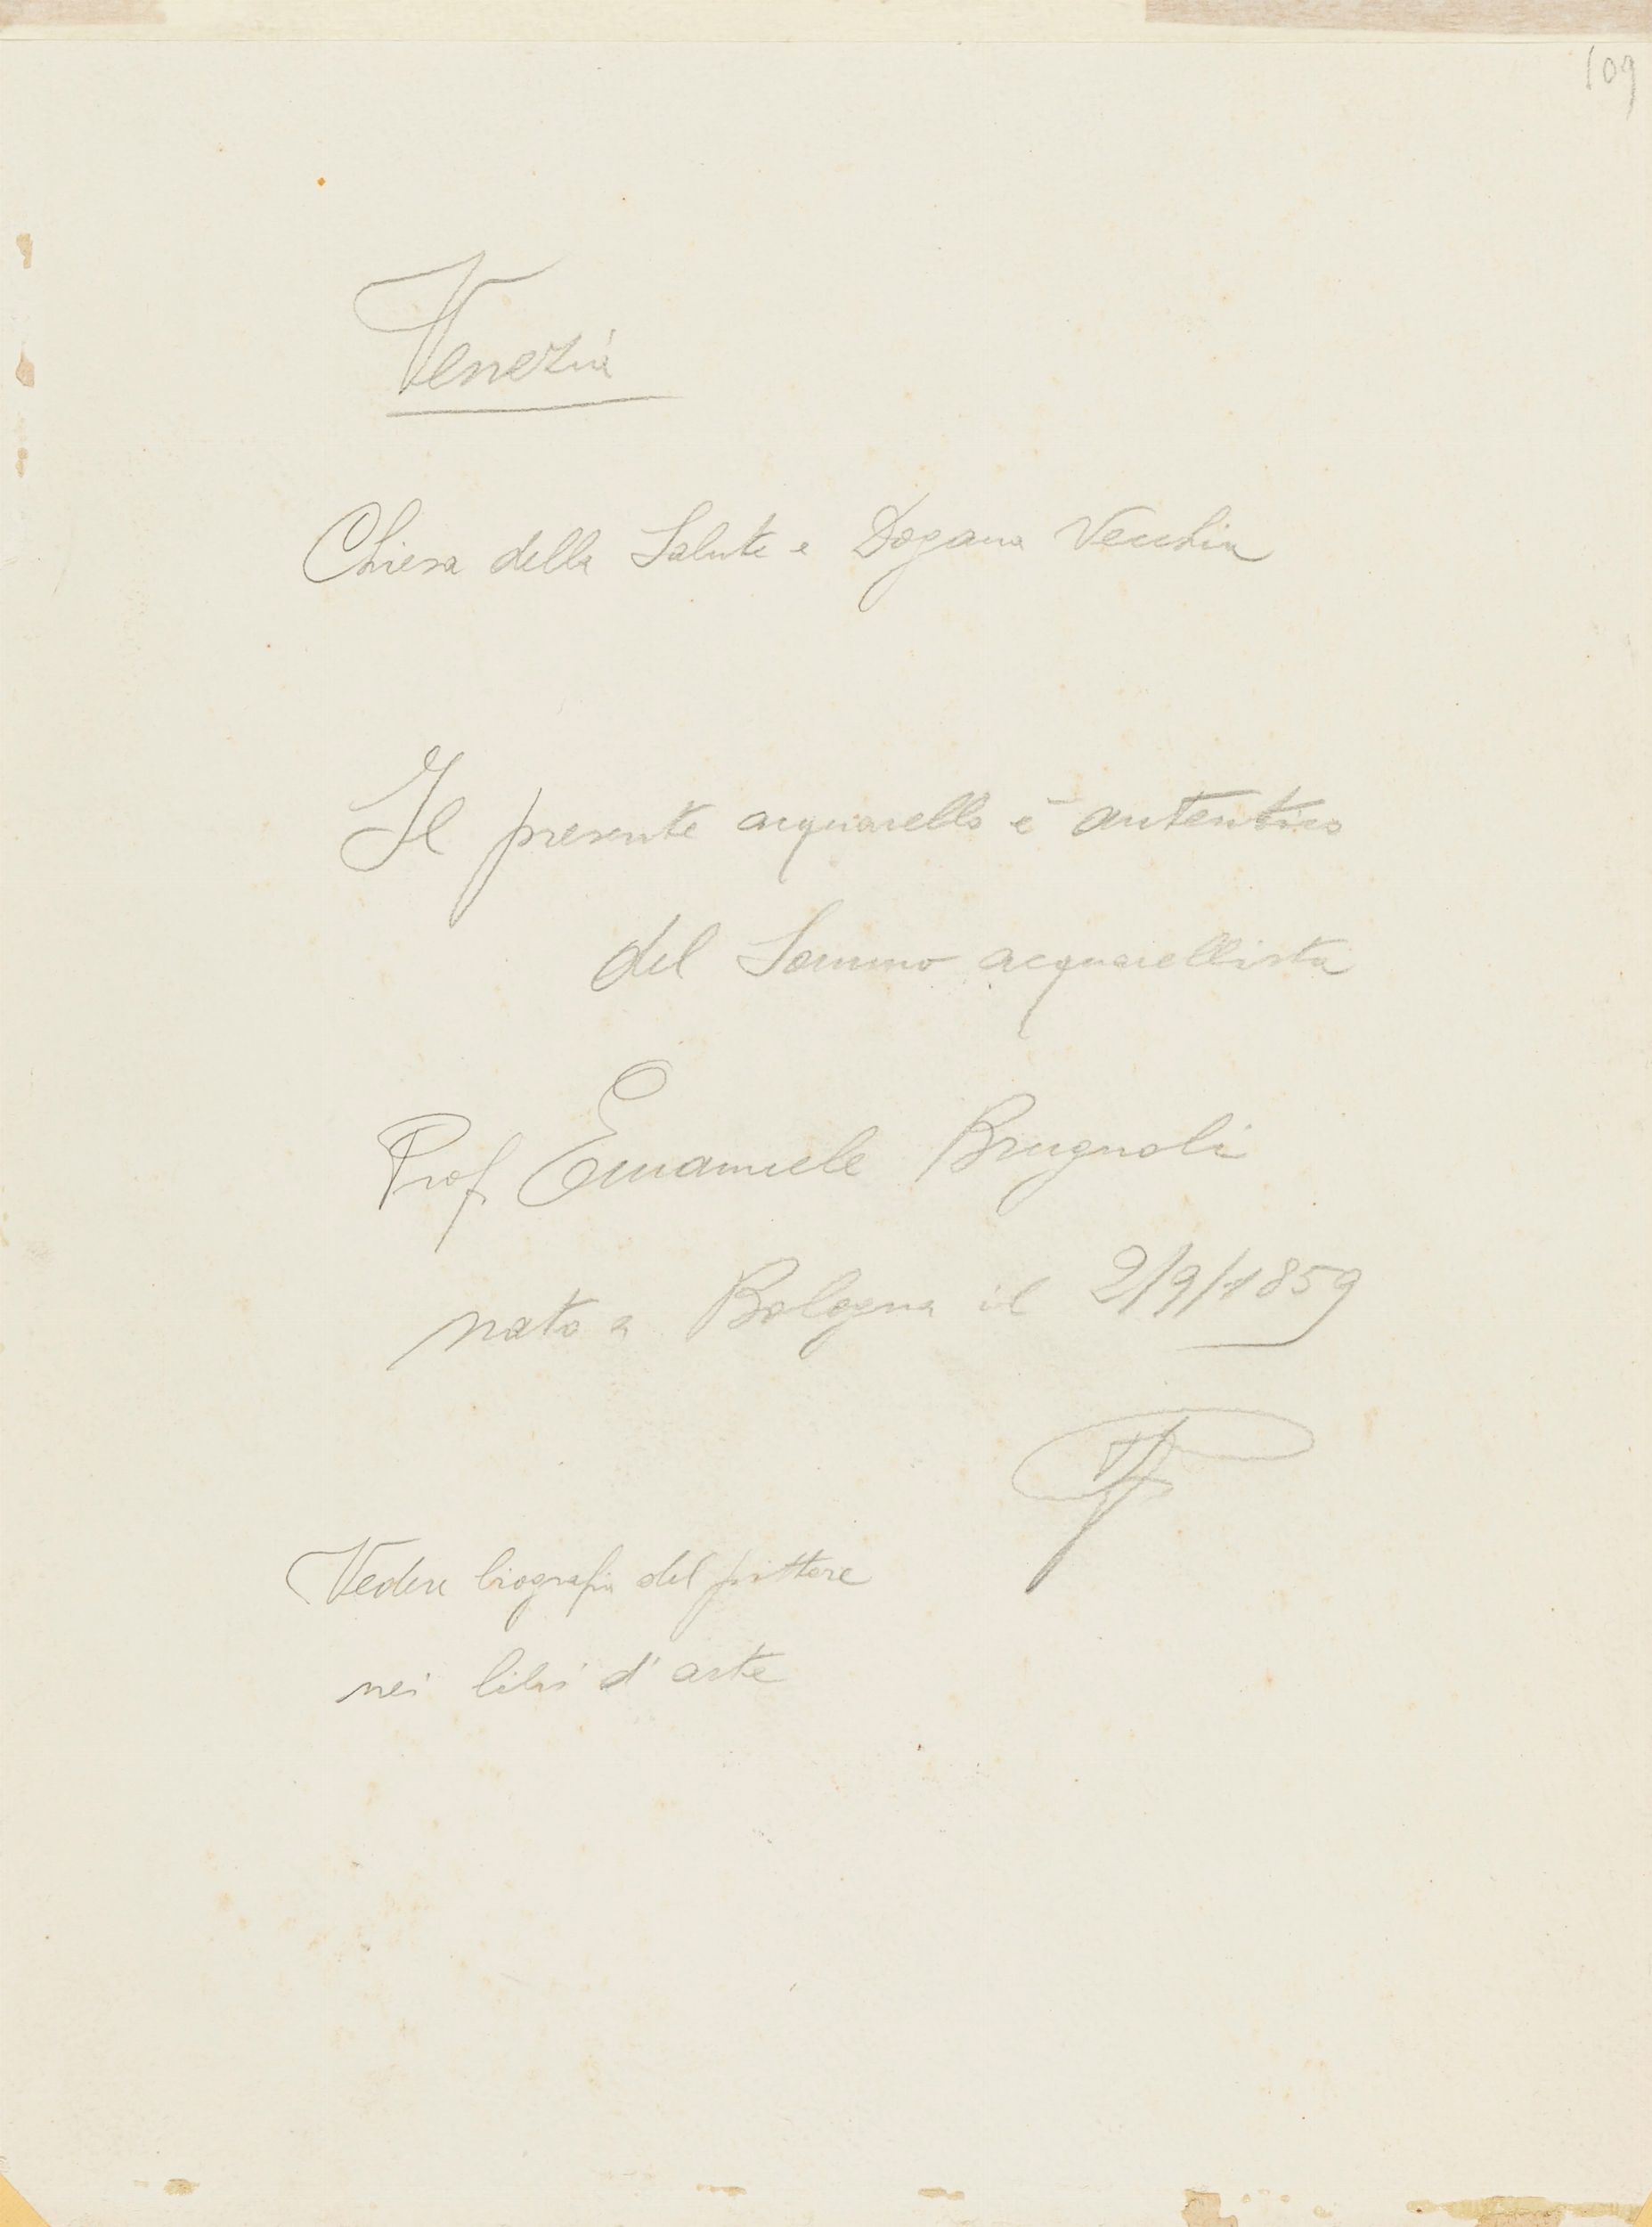 109
Venezia
Chiesa della Salute e Dogana Vecchia
Il presente acquarello è autentico
del Sommo acquarellista
Prof. Emanuele Brugnoli
nato a Bologna il 2/9/1859
Vedere biografia del pittore
nei libri d'arte